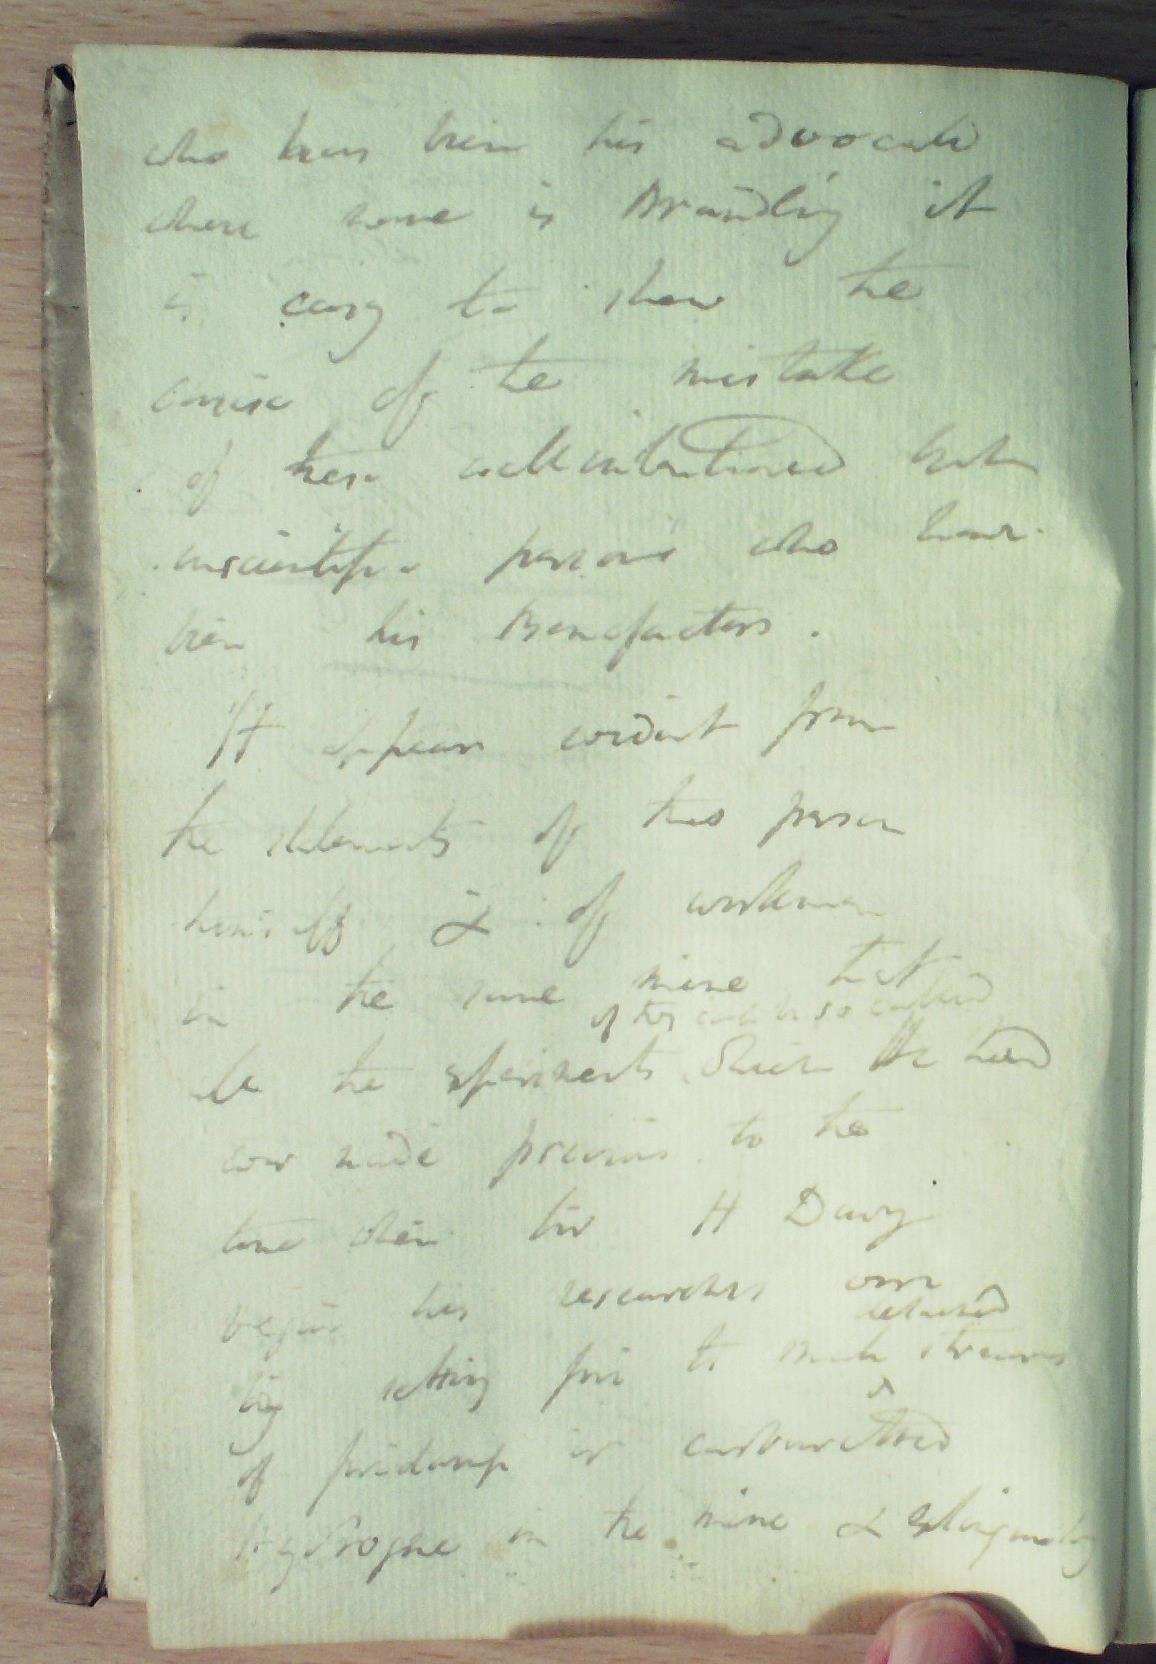 who has been his advocate
whose name is Brandling it
is easy to shew the
cause of the mistake
of these wellintentioned but
unscientific persons who have
been his Benefactors.
It appears evident from
the statements of this person
himself & of workmen
in the same mine that
of they can be so called
the experiments which He had
ever made previous to the
time when Sir H Davy
began his researches were
detached
by setting fire to streams
of firedamp or carburetted
Hydrogene in the mine & extinguishing